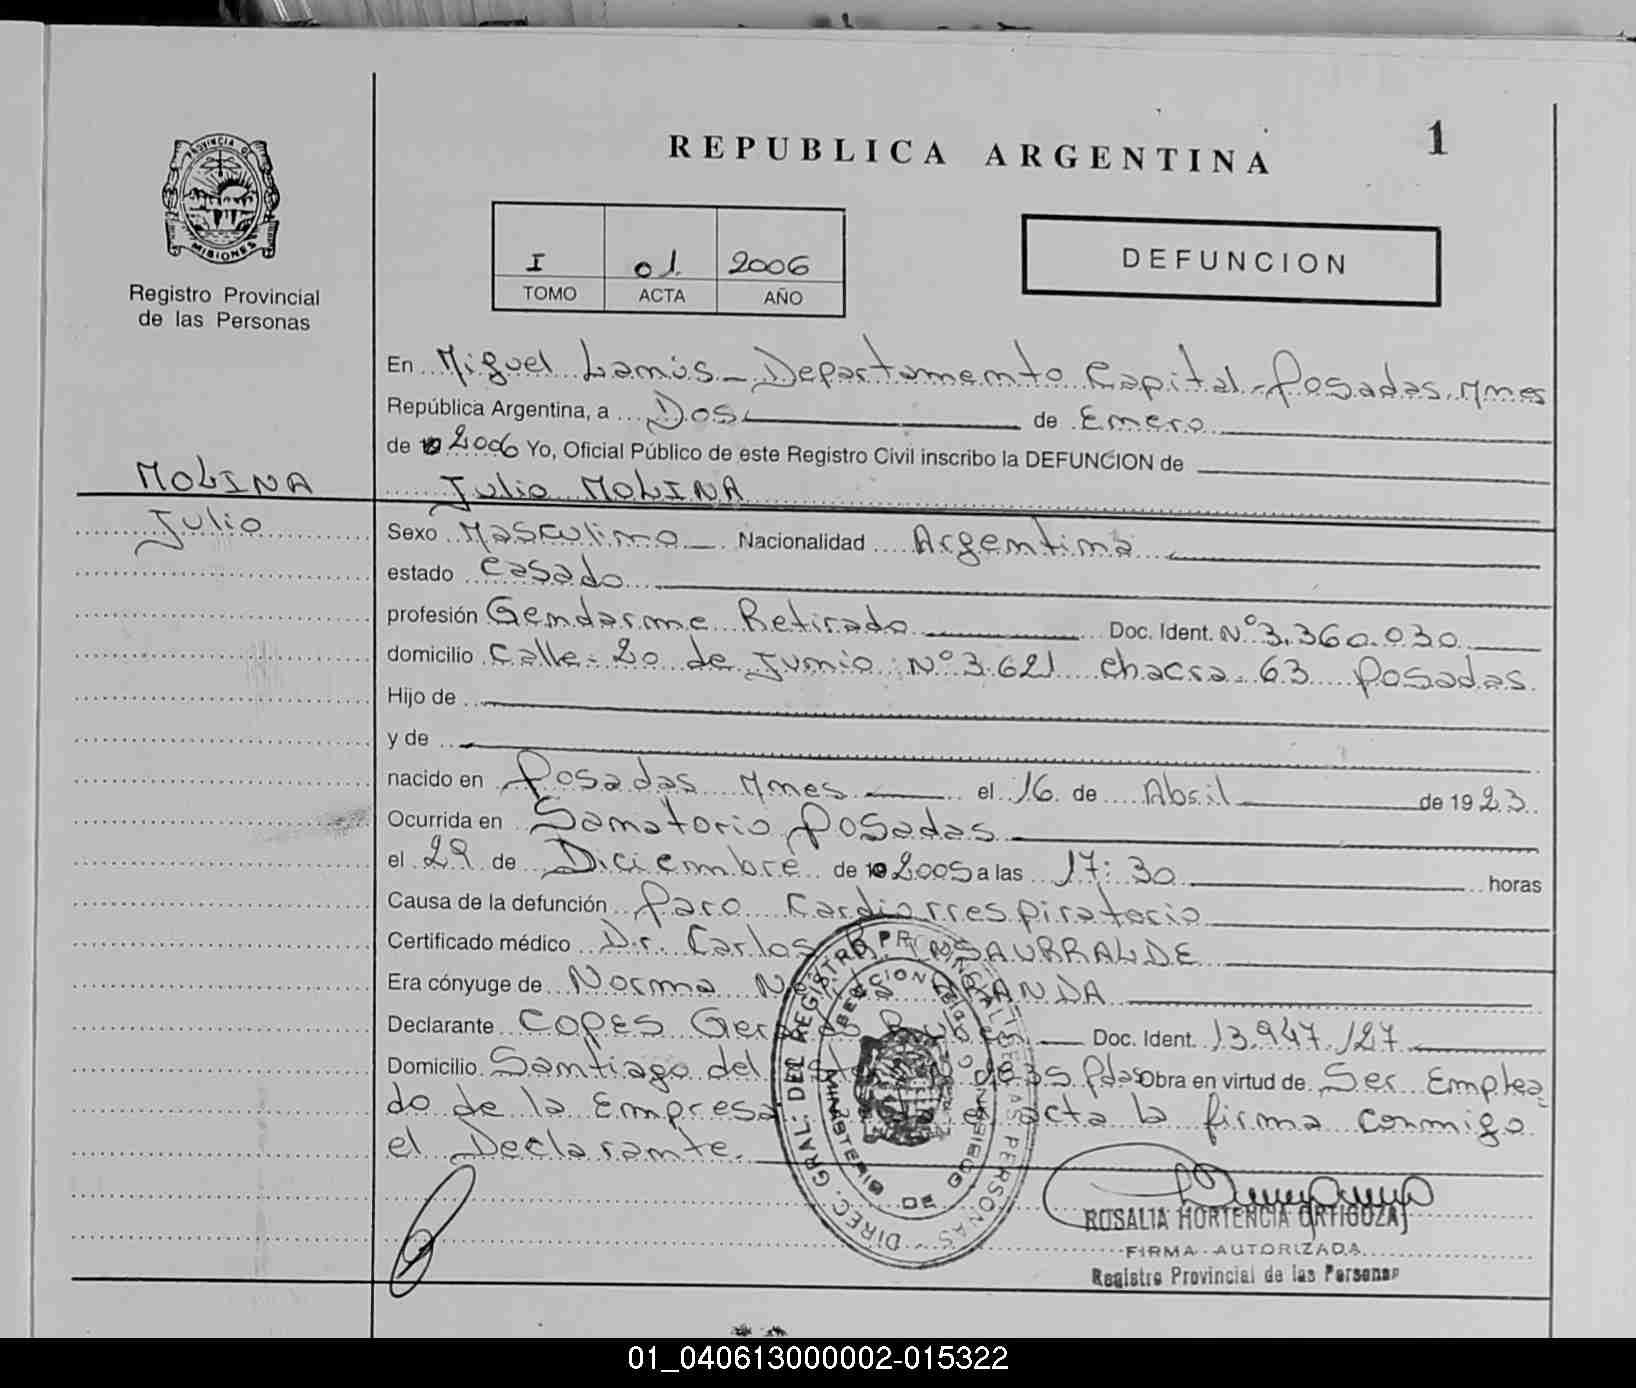 REPUBLICA ARGENTINA
1
PROVINCIA DE
MISIONES
Registro Provincial
de las Personas
I 01 2006
TOMO ACTA AÑO
DEFUNCION
En Miguel Lanús - Departamento Capital - Posadas, Mnes
República Argentina, a Dos de Enero
de 2006 Yo, Oficial Público de este Registro Civil inscribo la DEFUNCION de
MOLINA
Julio MOLINA
Julio
Sexo Masculino Nacionalidad Argentina
estado Casado
profesión Gendarme Retirado Doc. Ident. Nº 3.360.030
domicilio Calle - 20 de Junio Nº 3.621 Chacra - 63 Posadas
Hijo de
y de
nacido en Posadas Mnes el 16 de Abril de 1923
Ocurrida en Sanatorio Posadas
el 29 de Diciembre de 2005 a las 17:30 horas
Causa de la defunción Paro Cardiorrespiratorio
Certificado médico Dr. Carlos INSAURRALDE
Era cónyuge de Norma ARANDA
Declarante COPES Doc. Ident. 13.947.127
Domicilio Santiago del Pdas Obra en virtud de Ser Emplea
do de la Empresa acta la firma conmigo
el Declarante.
DIREC. GRAL. DEL REGISTRO PROVINCIAL DE LAS PERSONAS
MINISTERIO DE GOBIERNO
ROSALIA HORTENCIA ORTIGOZA
FIRMA AUTORIZADA
Registro Provincial de las Personas
01_040613000002-015322